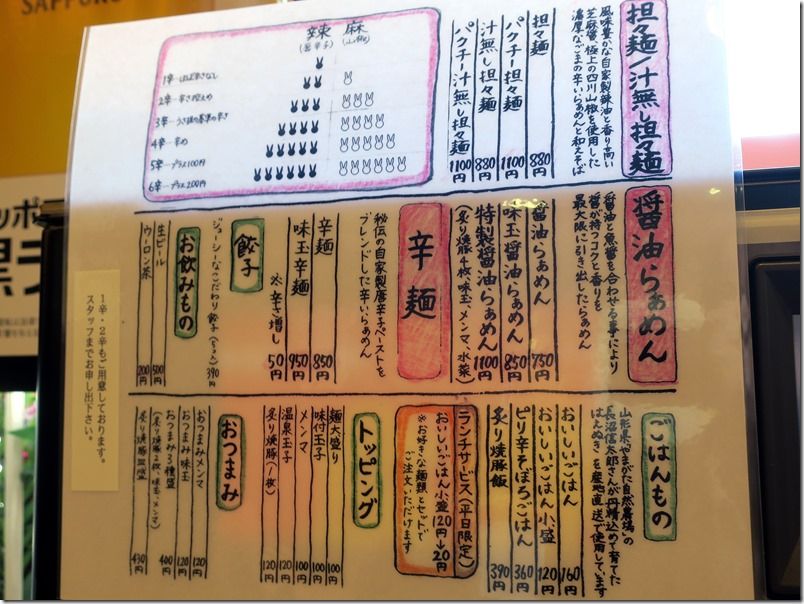 SAPPORO
担々麺/汁無し担々麺
風味豊かな自家製辣油と香り高い
芝麻醤、極上の四川山椒を使用した
濃厚なごまの辛いらぁめんと和えそば
担々麺 880円
パクチー担々麺 1100円
汁無し担々麺 880円
パクチー汁無し担々麺 1100円
辣 麻
(唐辛子) (山椒)
1辛…ほぼ辛さなし
2辛…辛さ控えめ
3辛…うさ頂の基準の辛さ
4辛…辛め
5辛…プラス100円
6辛…プラス200円
醤油らぁめん
醤油と魚醤を合わせる事により
醤が持つコクと香りを
最大限に引き出したらぁめん
醤油らぁめん 750円
味玉醤油らぁめん 850円
特製醤油らぁめん 1100円
(炙り焼豚4枚、味玉、メンマ、水菜)
辛麺
秘伝の自家製唐辛子ペーストを
ブレンドした辛いらぁめん
辛麺 850円
味玉辛麺 950円
※辛さ増し 50円
餃子
ジューシーなこだわり餃子(5コ入) 390円
お飲みもの
生ビール 500円
ウーロン茶 200円
1辛・2辛もご用意しております。
スタッフまでお申し出下さい。
ごはんもの
山形県"やまがた自然農場"の
長沼信太郎さんが丹精込めて育てた
"はえぬき"を産地直送で使用しています
おいしいごはん 160円
おいしいごはん小盛 120円
ピリ辛そぼろごはん 360円
炙り焼豚飯 390円
ランチサービス(平日限定)
おいしいごはん小盛 120円→20円
※お好きな麺類とセットで
ご注文いただけます
トッピング
麺大盛り 100円
味付玉子 100円
メンマ 100円
温泉玉子 120円
炙り焼豚(1枚) 120円
おつまみ
おつまみメンマ 120円
おつまみ味玉 120円
おつまみ3種盛 400円
(炙り焼豚2枚、味玉、メンマ)
炙り焼豚皿盛 430円